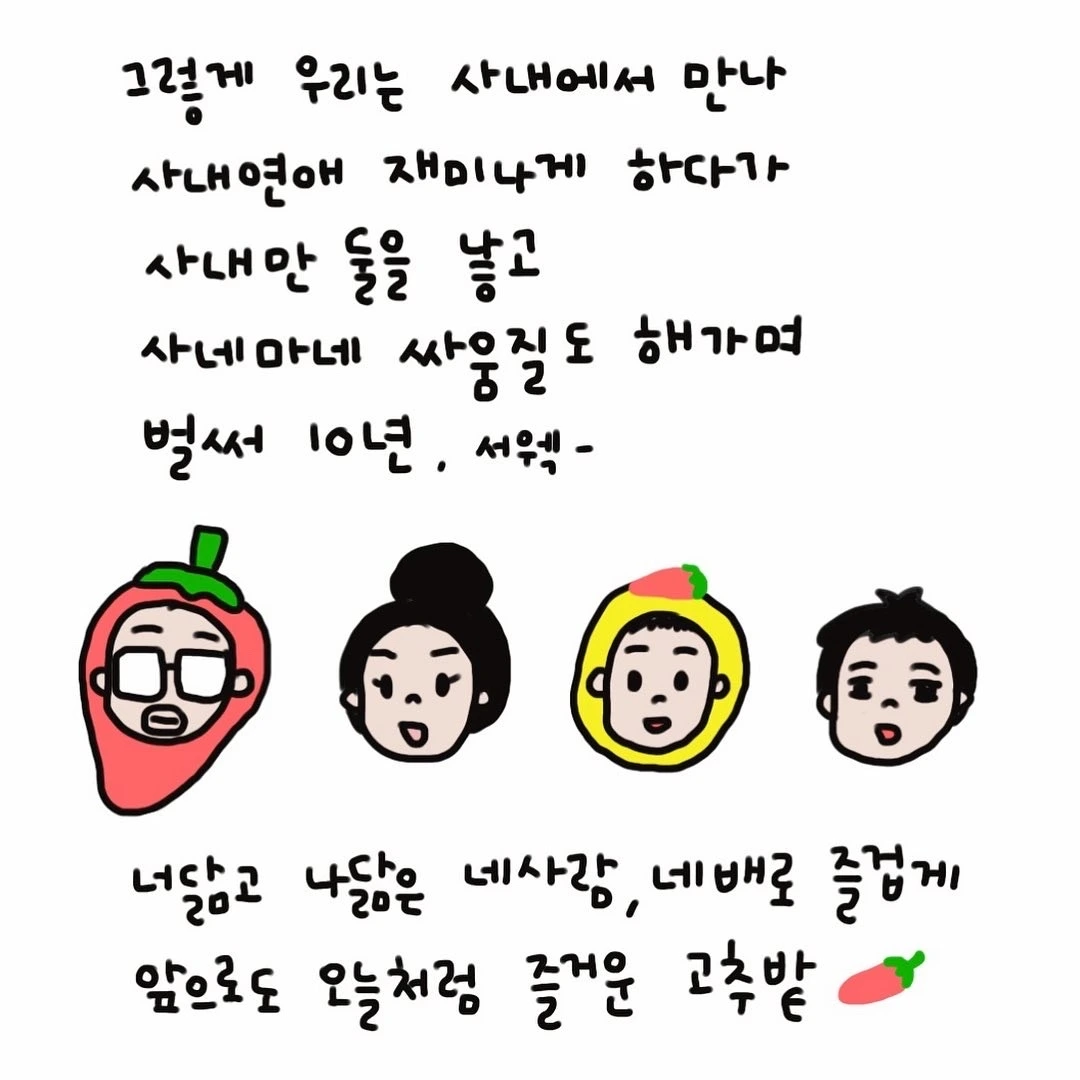 그렇게 우리는 사내에서 만나
사내연애 재미나게 하다가
사내만 둘을 낳고
사네마네 싸움질도 해가며
벌써 10년, 서웩-
너닮고 나닮은 네사람, 네배로 즐겁게
앞으로도 오늘처럼 즐거운 고추밭